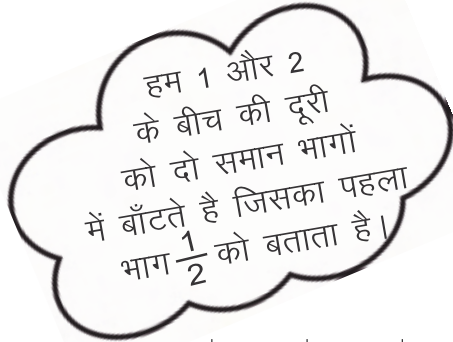 हम 1 और 2
के बीच की दूरी
को दो समान भागों
में बाँटते है जिसका पहला
भाग 1/2 को बताता है।